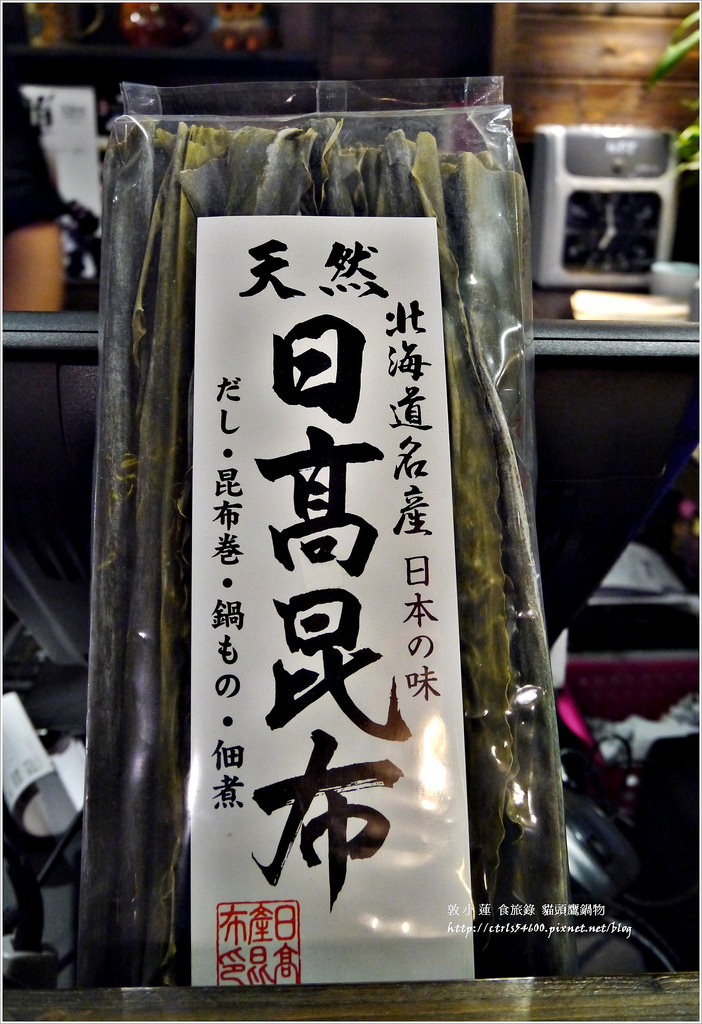 天然
北海道名産 日本の味
日髙昆布
だし・昆布巻・鍋もの・佃煮
日髙
産昆
布印
敦小蓮 食旅錄 貓頭鷹鍋物
http://ctrls54600.pixnet.net/blog